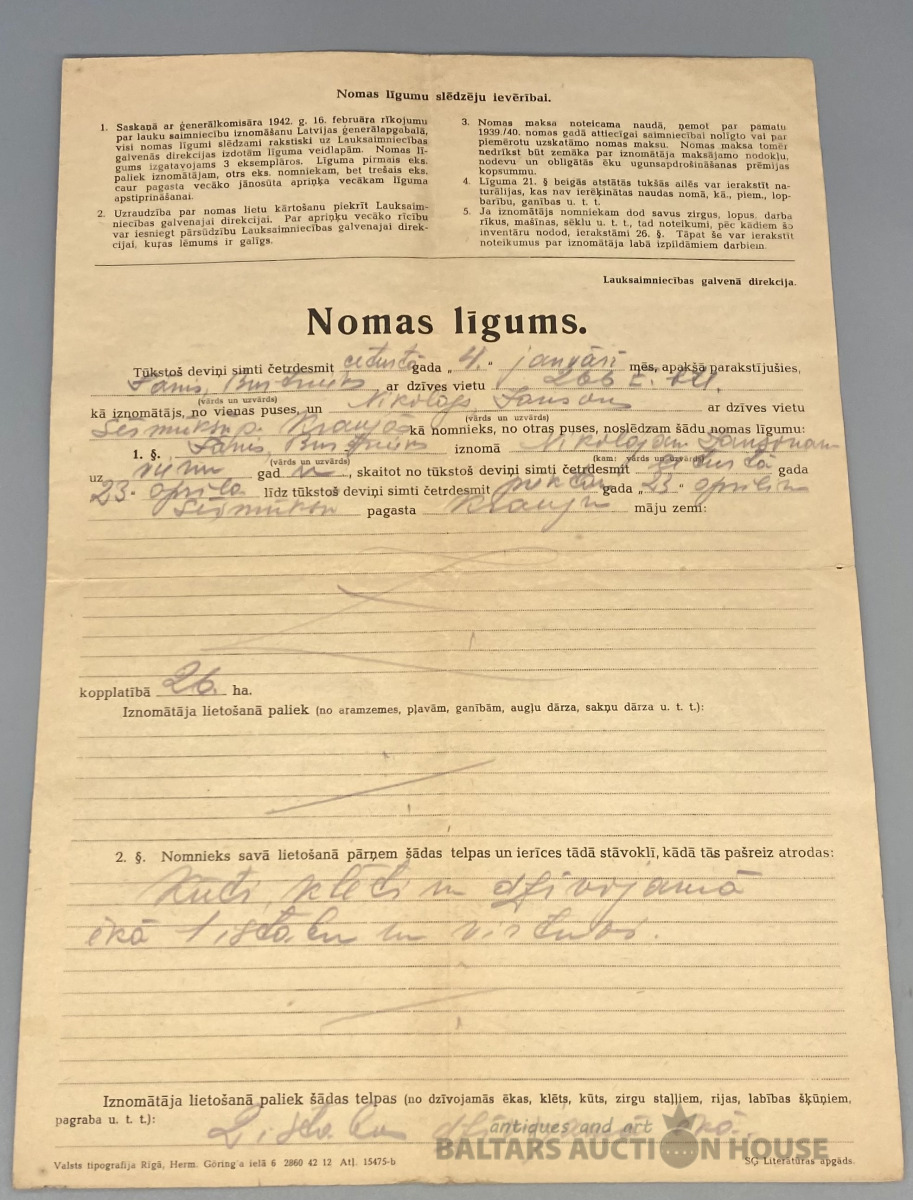 Nomas līgumu slēdzēju ievērībai.
1. Saskaņā ar ģenerālkomisāra 1942. g. 16. februāra rīkojumu
par lauku saimniecību iznomāšanu Latvijas ģenerālapgabalā,
visi nomas līgumi slēdzami rakstiski uz Lauksaimniecības
galvenās direkcijas izdotām līguma veidlapām. Nomas lī-
gums izgatavojams 3 eksemplāros. Līguma pirmais eks.
paliek iznomātājam, otrs eks. nomniekam, bet trešais eks.
caur pagasta vecāko jānosūta apriņķa vecākam līguma
apstiprināšanai.
2. Uzraudzība par nomas lietu kārtošanu piekrīt Lauksaim-
niecības galvenajai direkcijai. Par apriņķu vecāko rīcību
var iesniegt pārsūdzību Lauksaimniecības galvenajai direk-
cijai, kuŗas lēmums ir galīgs.
3. Nomas maksa noteicama naudā, ņemot par pamatu
1939/40. nomas gadā attiecīgai saimniecībai nolīgto vai par
piemērotu uzskatāmo nomas maksu. Nomas maksa tomēr
nedrīkst būt zemāka par iznomātāja maksājamo nodokļu,
nodevu un obligātās ēku ugunsapdrošināšanas prēmijas
kopsummu.
4. Līguma 21. § beigās atstātās tukšās ailēs var ierakstīt na-
turālijas, kas nav ierēķinātas naudas nomā, kā, piem., lop-
barību, ganības u. t. t.
5. Ja iznomātājs nomniekam dod savus zirgus, lopus, darba
rīkus, mašīnas, sēklu u. t. t., tad noteikumi, pēc kādiem šo
inventāru nodod, ierakstāmi 26. §. Tāpat še var ierakstīt
noteikumus par iznomātāja labā izpildāmiem darbiem.
Lauksaimniecības galvenā direkcija.
Nomas līgums.
Tūkstoš deviņi simti četrdesmit ceturtā gada „4.“ janvārī mēs, apakšā parakstījušies,
Jānis, ar dzīves vietu
(vārds un uzvārds)
kā iznomātājs, no vienas puses, un Nikolajs Jansons ar dzīves vietu
(vārds un uzvārds)
kā nomnieks, no otras puses, noslēdzam šādu nomas līgumu:
1. §. Jānis, iznomā Nikolajam Jansonam
(vārds un uzvārds) (kam: vārds un uzvārds)
uz vienu gad u, skaitot no tūkstoš deviņi simti četrdesmit ceturtā gada
23. aprīļa līdz tūkstoš deviņi simti četrdesmit piektā gada „23“ aprīlim
pagasta māju zemi:
kopplatībā 26. ha.
Iznomātāja lietošanā paliek (no aramzemes, pļavām, ganībām, augļu dārza, sakņu dārza u. t. t.):
2. §. Nomnieks savā lietošanā pārņem šādas telpas un ierīces tādā stāvoklī, kādā tās pašreiz atrodas:
Kūti, klēti un dzīvojamā
ēkā 1 istabu un virtuvi.
Iznomātāja lietošanā paliek šādas telpas (no dzīvojamās ēkas, klēts, kūts, zirgu staļļiem, rijas, labības šķūņiem,
pagraba u. t. t.): 2 istabas dzīvojamā ēkā.
antiques and art
BALTARS AUCTION HOUSE
Valsts tipografija Rīgā, Herm. Göring'a ielā 6 2860 42 12 Atļ. 15475-b
SG Literātūras apgāds.